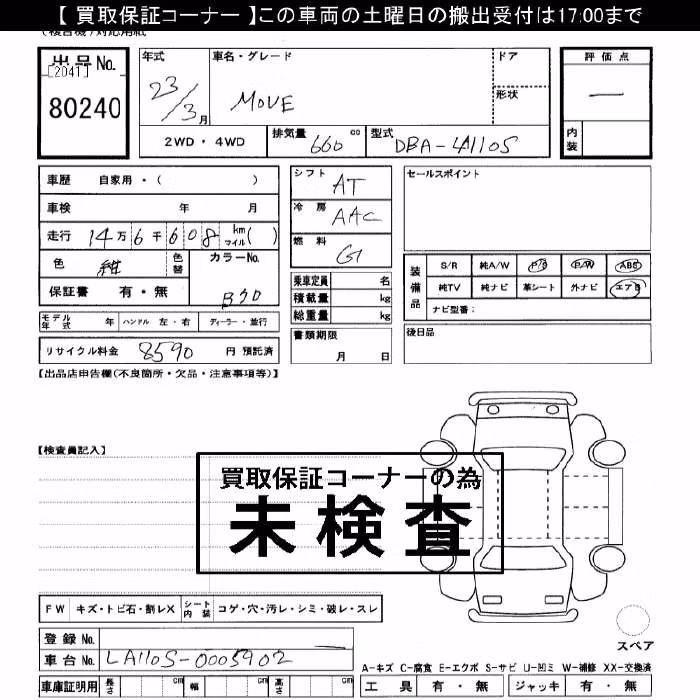 【 買取保証コーナー 】この車両の土曜日の搬出受付は17:00まで
出品 No.
[2041]
80240
年式
23/3月
車名・グレード
MOVE
ドア
形状
2WD・4WD
排気量 660 cc
型式 DBA-LA110S
評価点
—
内装
車歴 自家用・( )
車検 年 月
走行 14万6千608 km マイル( )
色 紺 色替 カラーNo.
保証書 有・無
モデル年式 年 ハンドル 左・右 ディーラー・並行
リサイクル料金 8590 円 預託済
シフト AT
冷房 AAC
燃料 G
乗車定員 名
積載量 kg
総重量 kg
書類期限
月 日
セールスポイント
装備品
S/R 純A/W P/S P/W ABS
純TV 純ナビ 革シート 外ナビ エアB
ナビ型番:
後日品
【出品店申告欄(不良箇所・欠品・注意事項等)】
【検査員記入】
買取保証コーナーの為
未検査
FW キズ・トビ石・割レX シート内装 コゲ・穴・汚レ・シミ・破レ・スレ
登録 No.
車台 No. LA110S-0005902
車庫証明用 長さ cm 幅 cm 高さ cm
スペア
A-キズ C-腐食 E-エクボ S-サビ U-凹ミ W-補修 XX-交換済
工具 有・無 ジャッキ 有・無